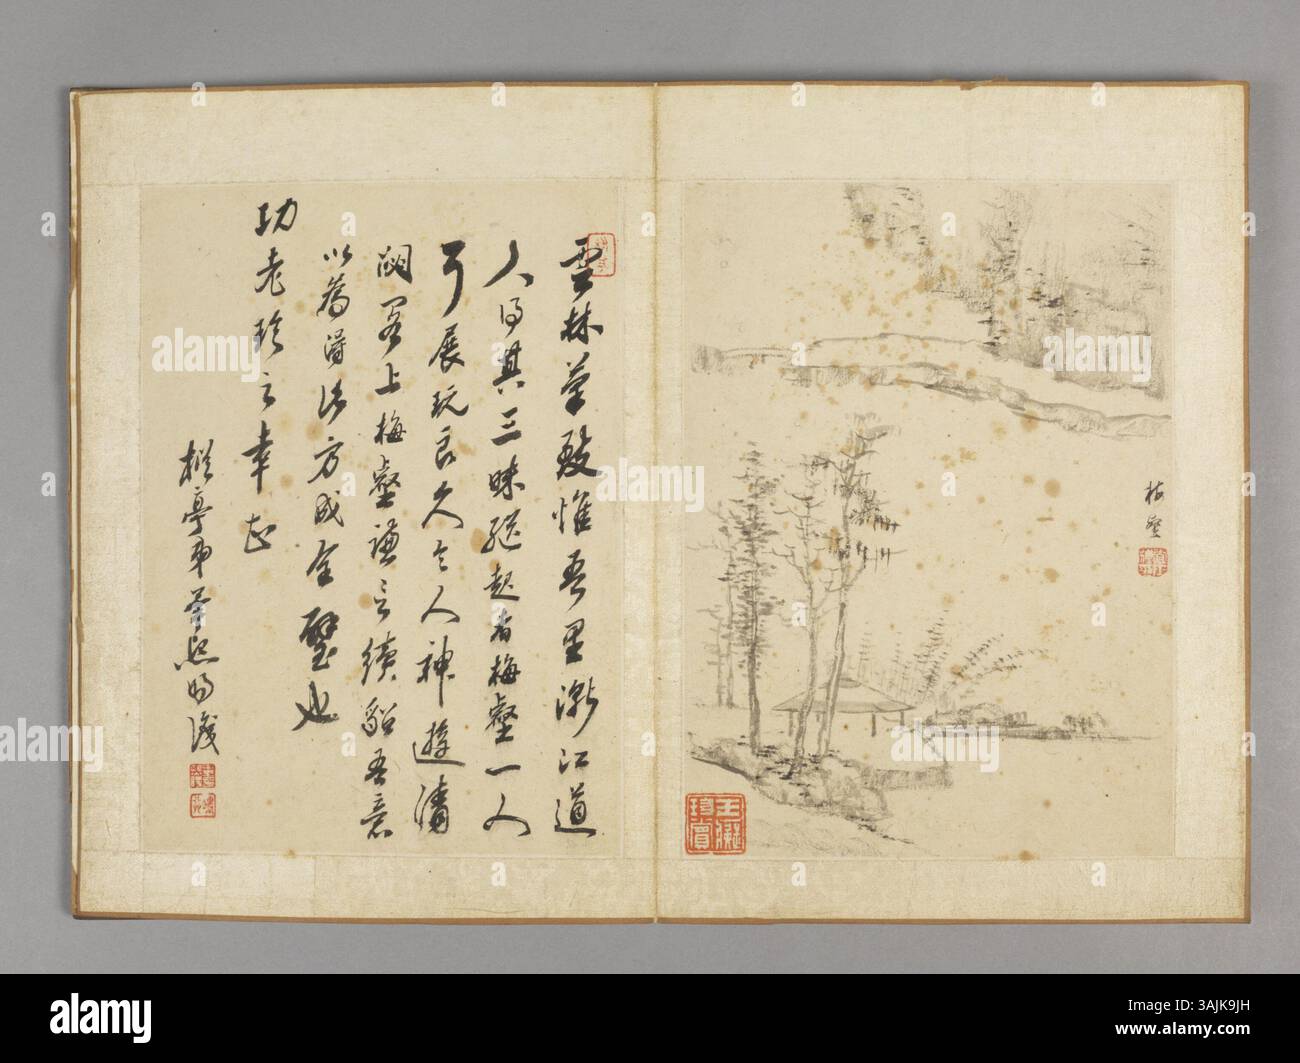 雲林筆發惟吾里漸江道
人得其三昧繼起者梅壑一人
展玩良久令人神遊清
閟閣上梅壑謙言續貂吾意
以為濟法方成全璧也
功老珍之幸也
梅壑
王
珍賞
alamy
Image ID: 3AJK9JH
www.alamy.com